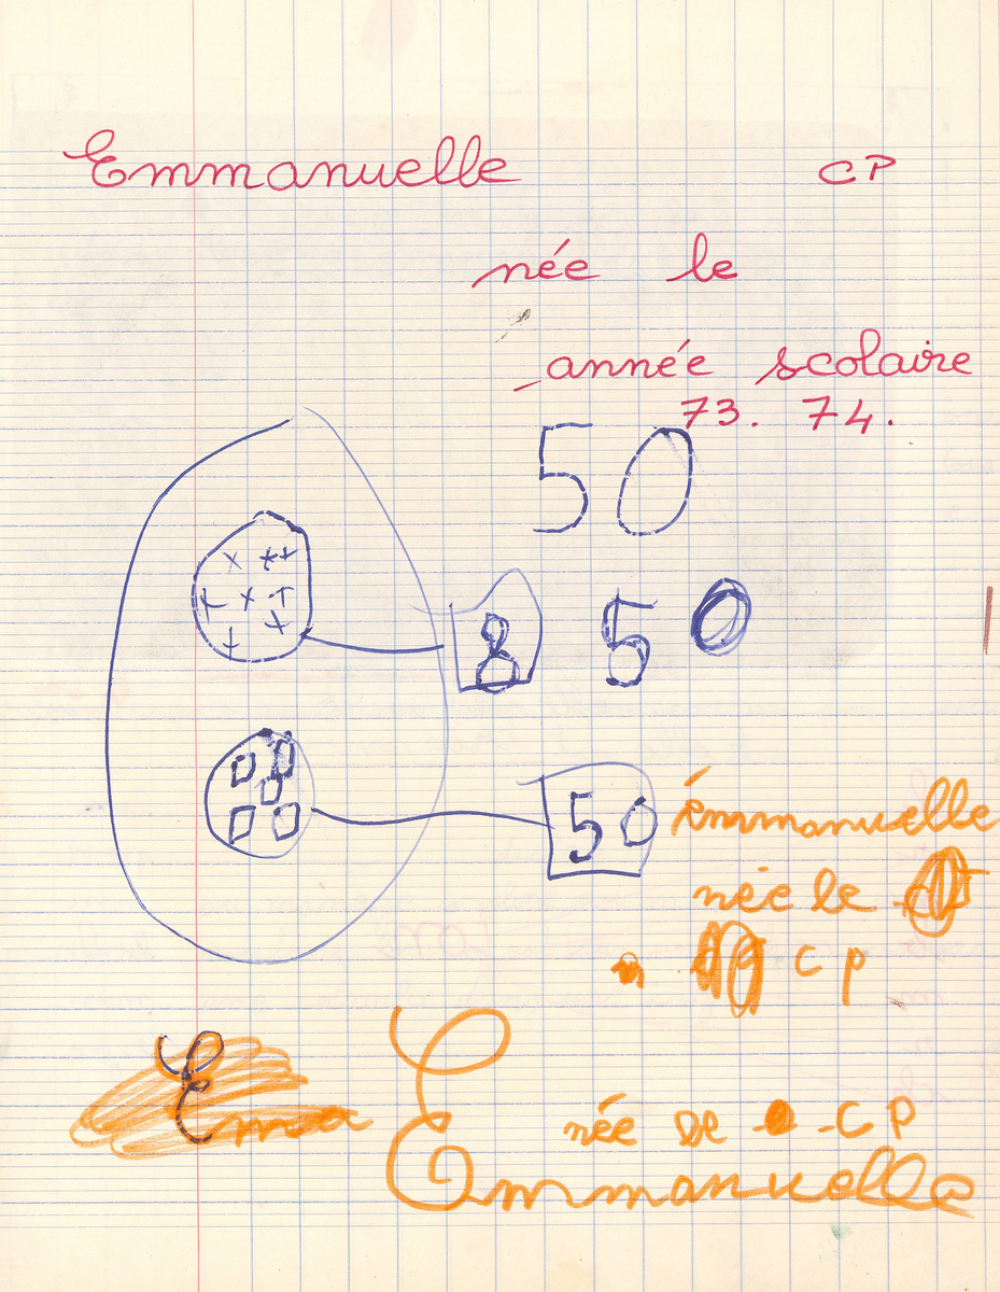 Emmanuelle CP
née le
année scolaire
73. 74.
50
8 50
50 Emmanuelle
née le
CP
Ema
née le CP
Emmanuelle